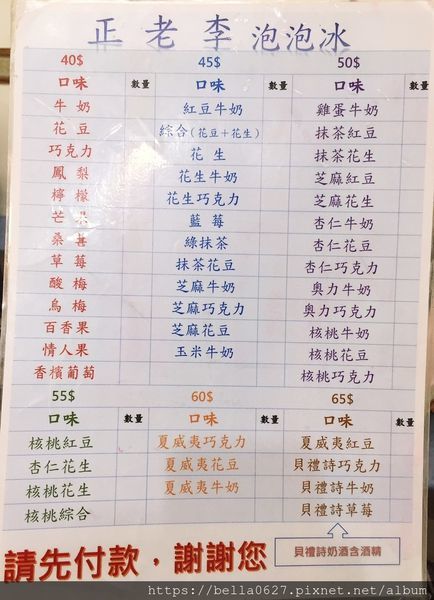 正老李泡泡冰
40$ 45$ 50$
口味 數量 口味 數量 口味 數量
牛奶 紅豆牛奶 雞蛋牛奶
花豆 綜合(花豆+花生) 抹茶紅豆
巧克力 花生 抹茶花生
鳳梨 花生牛奶 芝麻紅豆
檸檬 花生巧克力 芝麻花生
芒果 藍莓 杏仁牛奶
桑葚 綠抹茶 杏仁花豆
草莓 抹茶花豆 杏仁巧克力
酸梅 芝麻牛奶 奧力牛奶
烏梅 芝麻巧克力 奧力巧克力
百香果 芝麻花豆 核桃牛奶
情人果 玉米牛奶 核桃花豆
香檳葡萄 核桃巧克力
55$ 60$ 65$
口味 數量 口味 數量 口味 數量
核桃紅豆 夏威夷巧克力 夏威夷紅豆
杏仁花生 夏威夷花豆 貝禮詩巧克力
核桃花生 夏威夷牛奶 貝禮詩牛奶
核桃綜合 貝禮詩草莓
請先付款，謝謝您
貝禮詩奶酒含酒精
https://bella0627.pixnet.net/album